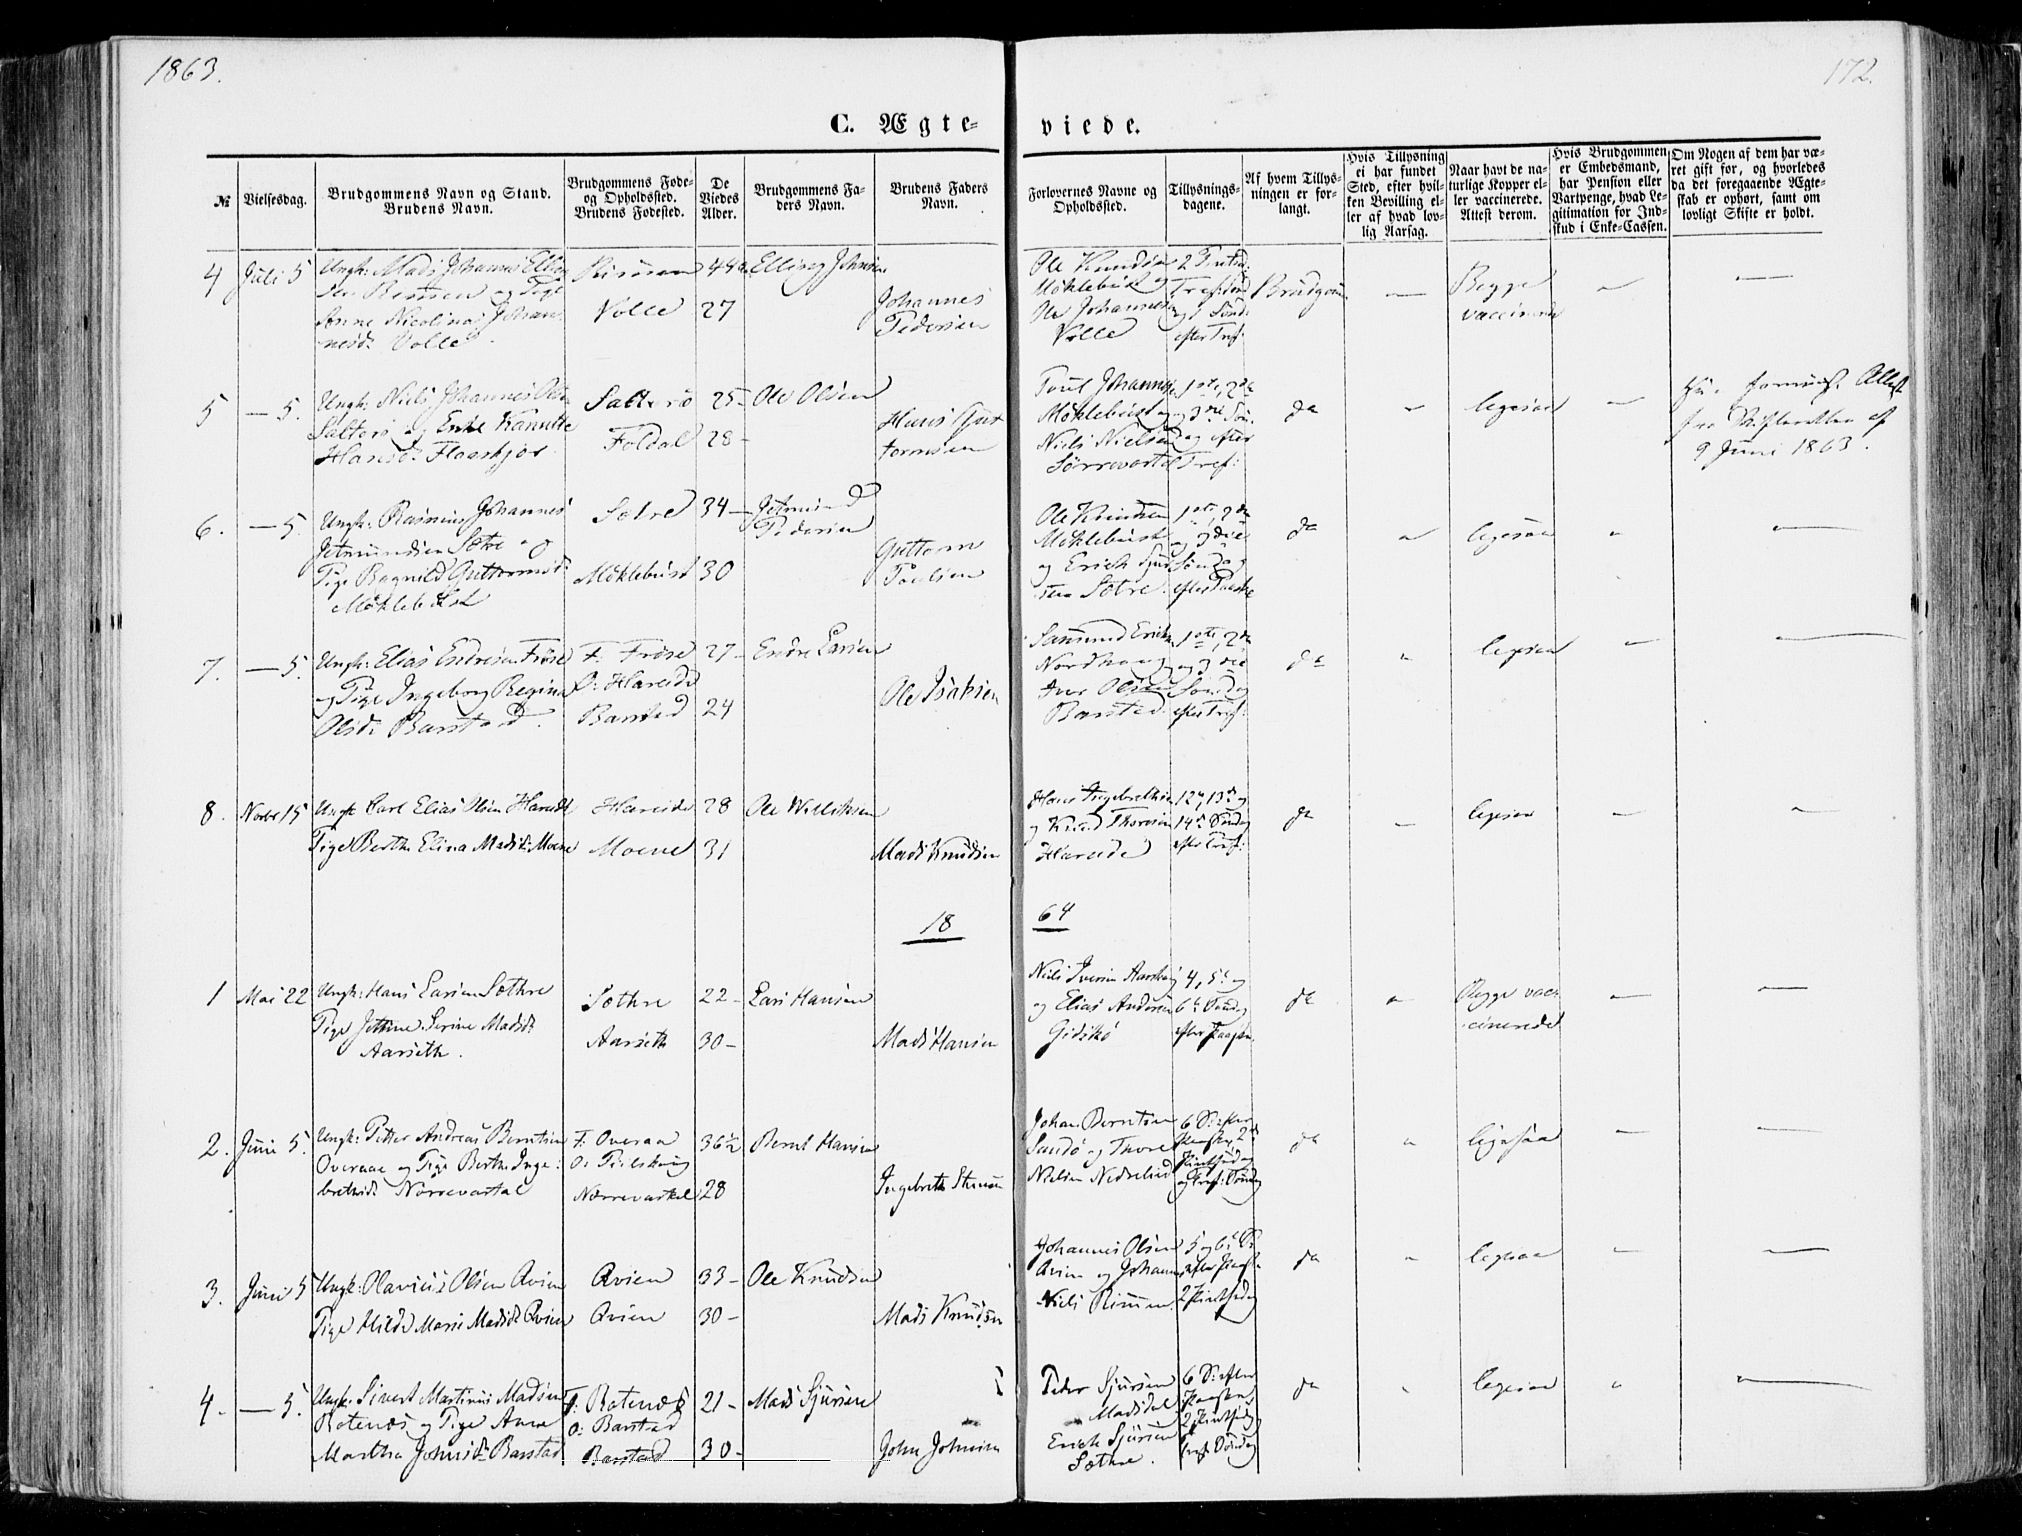 1863.
172.
C. Ægteviede.
№
Vielsesdag.
Brudgommens Navn og Stand.
Brudens Navn.
Brudgommens Føde-
og Opholdssted.
Brudens Fødested.
De
Viedes
Alder.
Brudgommens Fa-
ders Navn.
Brudens Faders
Navn.
Forlovernes Navne og
Opholdssted.
Tillysnings-
dagene.
Af hvem Tillys-
ningen er for-
langt.
Hvis Tillysning
ei har fundet
Sted, efter hvil-
ken Bevilling el-
ler af hvad lov-
lig Aarsag.
Naar havt de na-
turlige Kopper el-
ler vaccinerede.
Attest derom.
Hvis Brudgommen
er Embedsmand,
har Pension eller
Vartpenge, hvad Le-
gitimation for Ind-
skud i Enke-Cassen.
Om Nogen af dem har væ-
ret gift før, og hvorledes
da det foregaaende Ægte-
skab er ophørt, samt om
lovligt Skifte er holdt.
4 Juli 5
Ungk: Mads Johannes
og Pige
Anne Nicolina Johan-
nesd: Volle
Volle
44
27
Elling Johnsen
Johannes
Pedersen
Ole Knudsen
Møklebust og
Ole Johannesen
Volle
Brudgom
Begge
vaccinerede
5 — 5.
Ungk: Niels Johannes Olsen
Salterø og Enke Kanutte
Hansd: Flaaskjær
Salterø
Foldal
25
28
Ole Olsen
Hans Gut-
tormsen
Poul Johannesen
Møklebust og
Niels Nielsen
Sørrevartal
1ste, 2de
og 3die Søn.
og efter
Tref:
da
ligesaa
9 Juni 1863.
6. — 5.
Ungk: Rasmus Johannes
Jetmundsen Sætre og
Pige Ragnild Guttormsd:
Møklebust
Sætre
Møklebust
34
30
Jetmund
Pedersen
Guttorm
Poulsen
Ole Knudsen
Møklebust
og Erich Sjur-
sen Sætre
1ste, 2de
og 3die
Søndag
efter Paaske
da
ligesaa
7. — 5.
Ungk: Elias Endresen Frøse
og Pige Ingeborg Regina
Olsd: Barstad.
F: Frøse
O: Hareide
Barstad
27
24
Endre Larsen
Ole Isaksen
Samund Erichsen
Nordhaug og
Iver Olsen
Barstad
1ste, 2de
og 3die
Søndag
efter Tref:
da
ligesaa
8. Novbr 15
Ungk Carl Elias Olsen Hareide
Pige Berthe Elina Madsd: Moene
Hareide
Moene
28
31
Ole Williksen
Mads Knudsen
Hans Ingebrethsen
og Knud Thoresen
Hareide
12te, 13de og
14de Søndag
efter Tref:
da
ligesaa
18 64
1 Mai 22
Ungk: Hans Larsen Sæthre
Pige Jettine Serine Madsd:
Aarseth.
Sæthre
Aarseth
22
30
Lars Hansen
Mads Hansen
Niels Iversen Aarskog
og Elias Andersen
Gidskø
4, 5te og
6te Søndag
efter Paasken.
da
Begge vac-
cinerede
2. Juni 5.
Ungk: Petter Andreas Berntsen
Overaae og Pige Berthe Inge-
brethsd: Norrevartal
F: Overaa
Norrevartal
36½
28
Bernt Hansen
Ingebreth Stensen
Johan Berntsen
Sandø og Thore
Nielsen Nedrelid
da
ligesaa
3. Juni 5
Ungk: Olavius Olsen Qvien
Pige Hilde Marie Madsd: Qvien
Qvien
Qvien
33
30
Ole Knudsen
Mads Knudsen
Johannes Olsen
Qvien og Johannes
Niels
5 og 6te S:
efter Paaske
2 Pintsedag
da
ligesaa
4. — 5.
Ungk: Sivert Martinus Madsen
Rotenæs og Pige Anna
Martha Johnsd: Barstad
F: Rotenæs
O: Barstad
Barstad
21
30
Mads Sjursen
John Johnsen
Peder Sjursen
Madsdal
Erich Sjursen
Sæthre.
6 S: efter
Paasken,
2 Pintsedag
Tref: Søndag
da
ligesaa